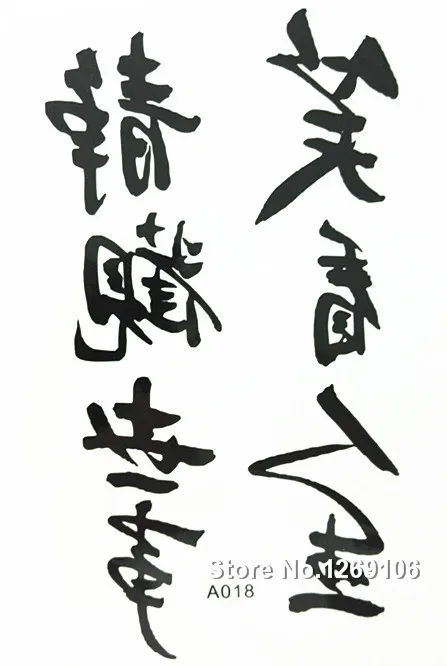 笑看人生
静觀世事
A018
Store No.1269106